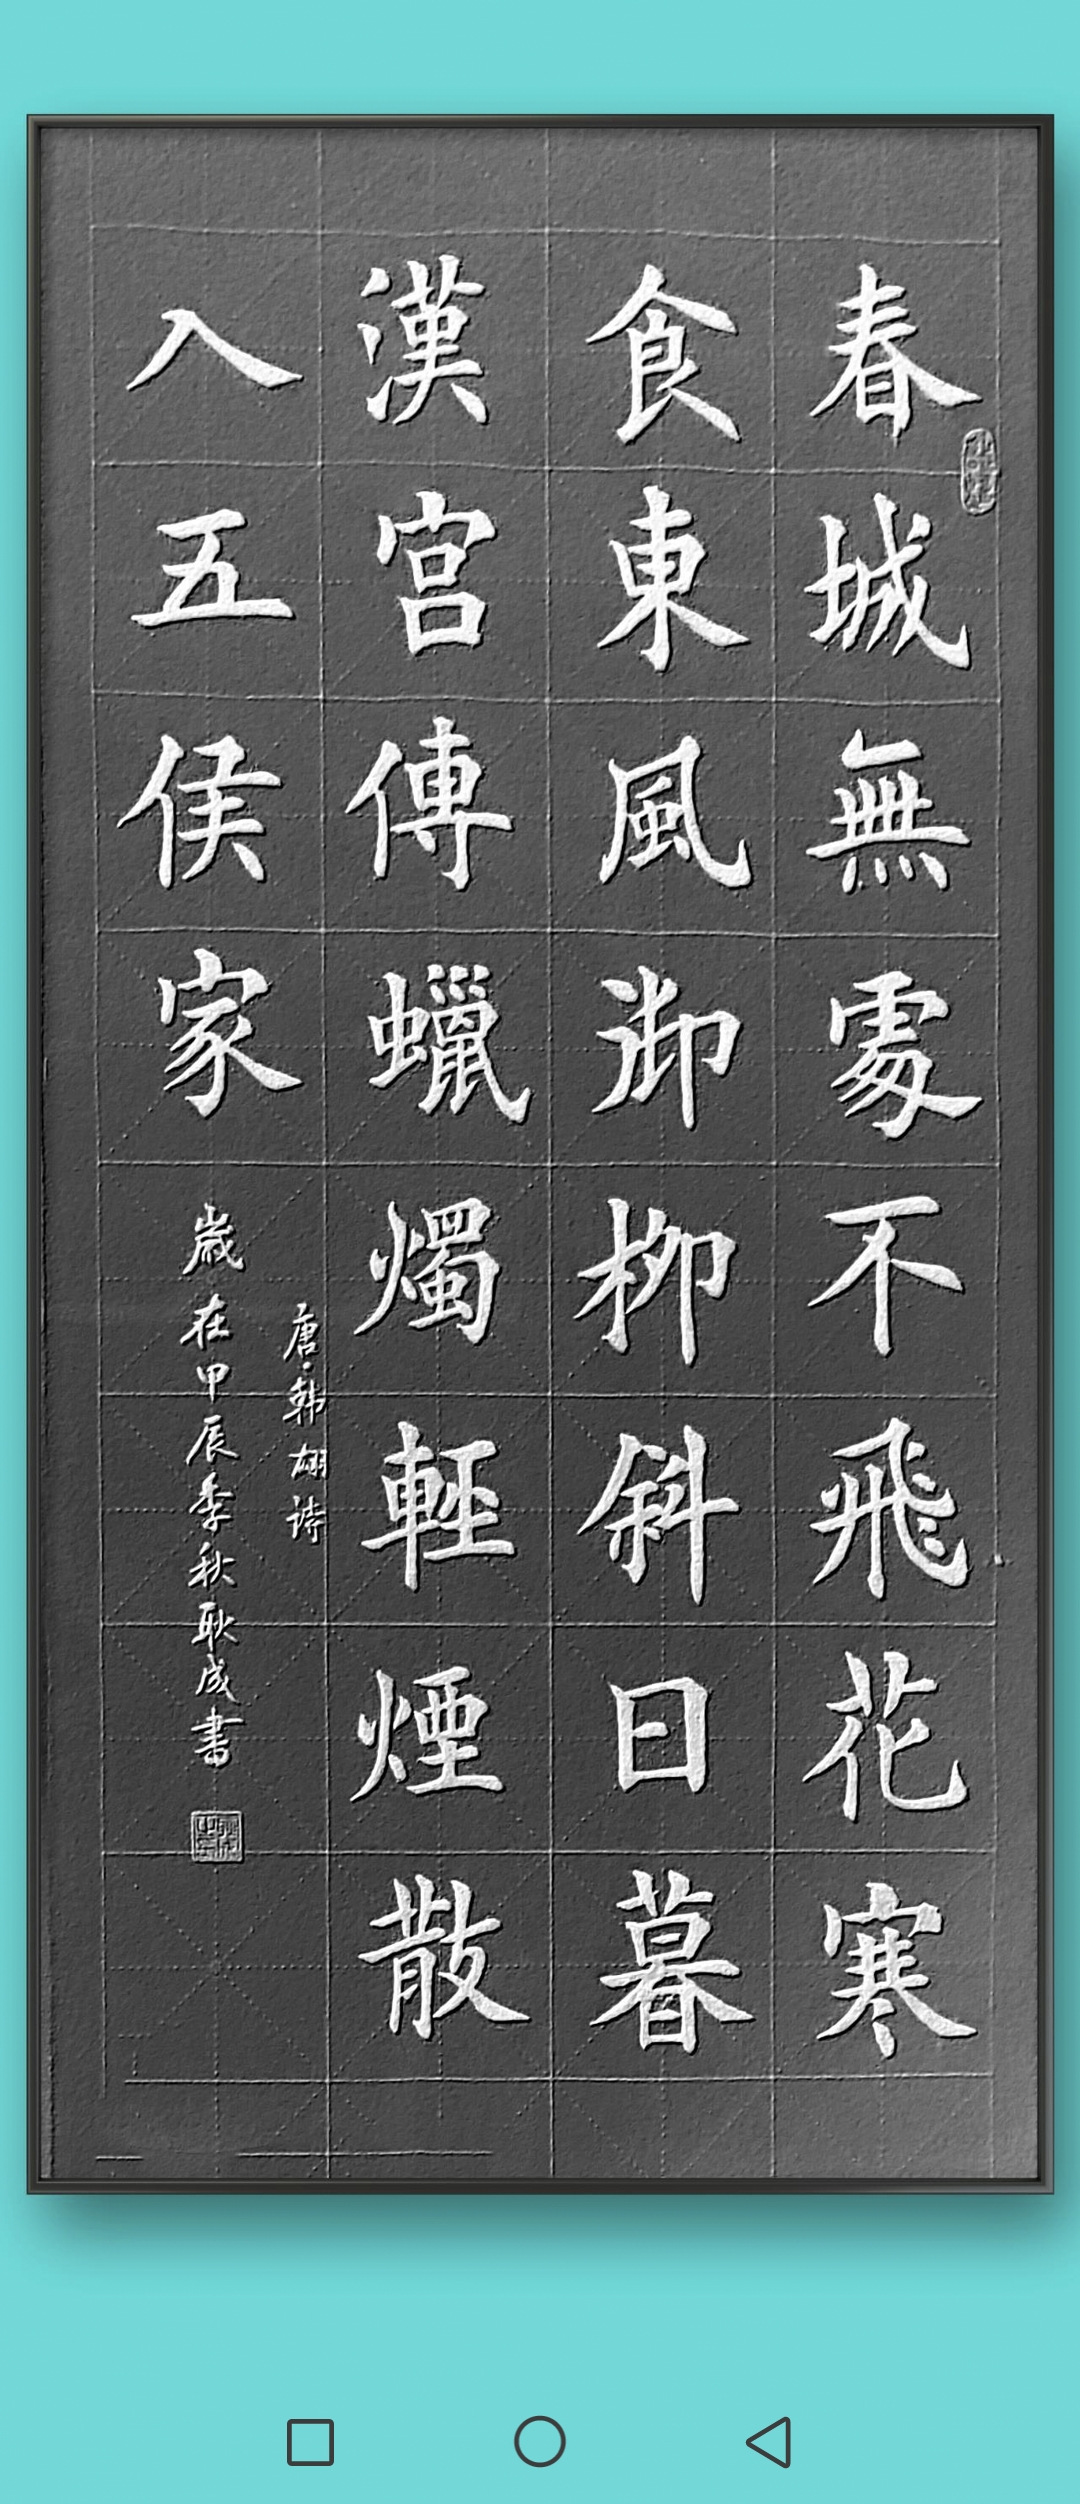 春城無處不飛花寒
食東風御柳斜日暮
漢宮傳蠟燭輕煙散
入五侯家
唐·韩翃诗
歲在甲辰季秋耿成書